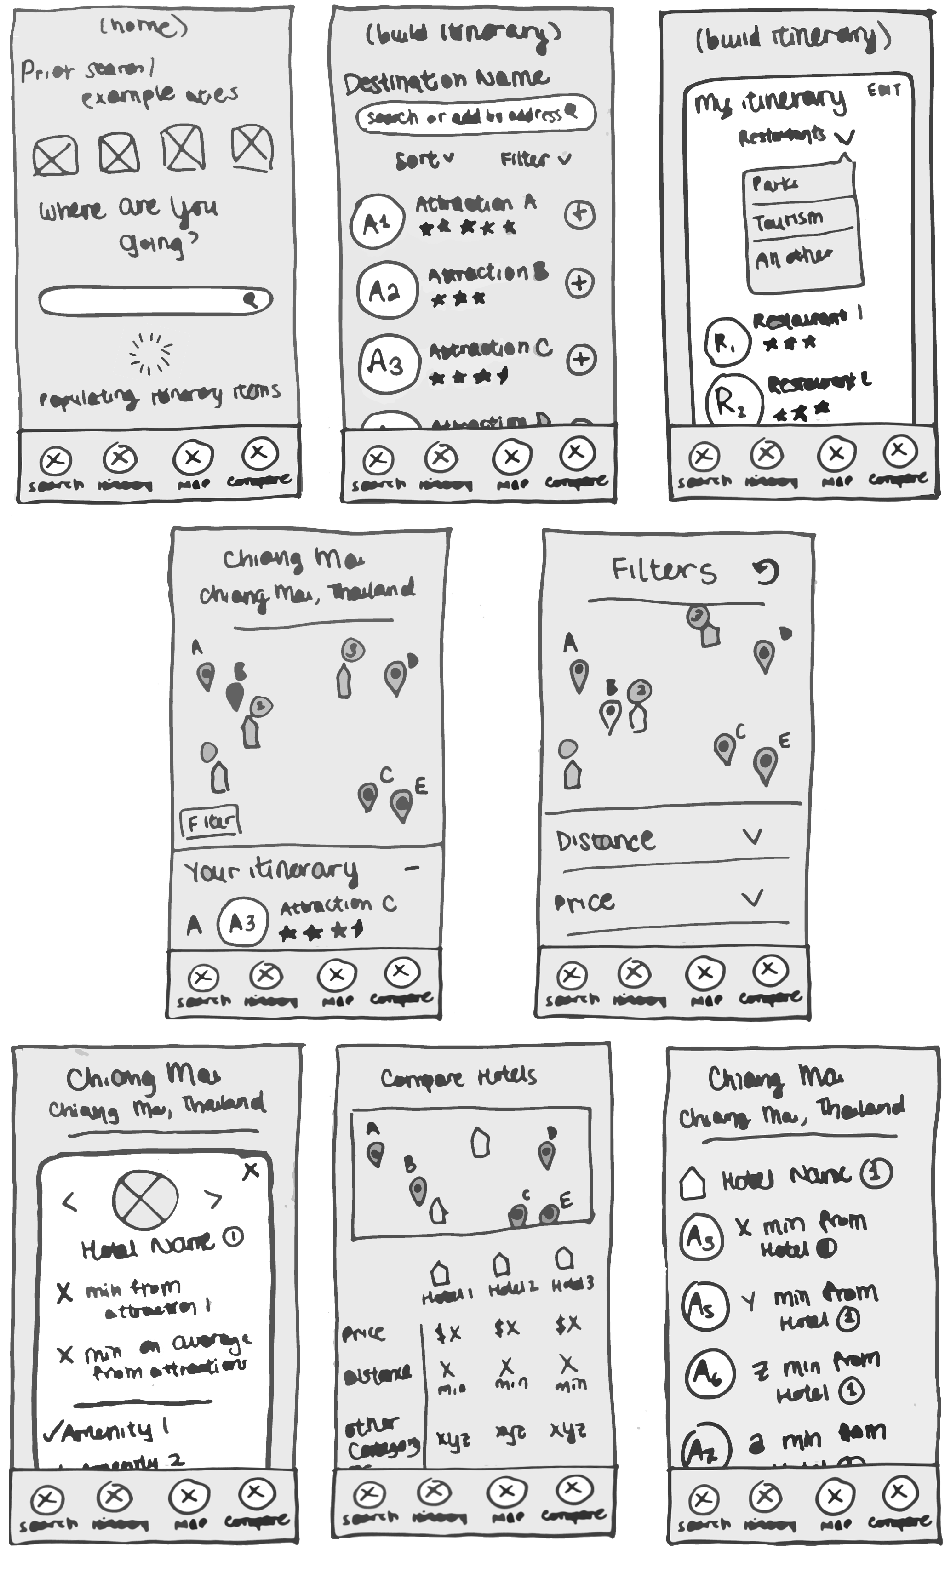 (home)
Prior search /
example cities
Where are you
going?
Populating itinerary items
Search
Map
Compare
(build itinerary)
Destination Name
search or add by address
Sort
Filter
A1
Attraction A
A2
Attraction B
A3
Attraction C
Attraction D
Search
Map
Compare
(build itinerary)
My itinerary
EDIT
Restaurants
Parks
Tourism
All other
R1
Restaurant 1
R2
Restaurant 2
Search
Map
Compare
Chiang Mai
Chiang Mai, Thailand
A
B
3
D
C
E
Filter
Your itinerary
A
A3
Attraction C
Search
Map
Compare
Filters
A
B
2
D
C
E
Distance
Price
Search
Map
Compare
Chiang Mai
Chiang Mai, Thailand
X
Hotel Name 1
X min from
attraction 1
X min on average
from attractions
Amenity 1
Amenity 2
Search
Map
Compare
Compare Hotels
A
B
D
C
E
Hotel 1
Hotel 2
Hotel 3
Price
$X
$X
$X
Distance
X min
X min
X min
other
category
xyz
xyz
xyz
Search
Map
Compare
Chiang Mai
Chiang Mai, Thailand
Hotel Name 1
A3
X min from
Hotel 1
A5
Y min from
Hotel 1
A6
Z min from
Hotel 1
A2
a min from
Search
Map
Compare